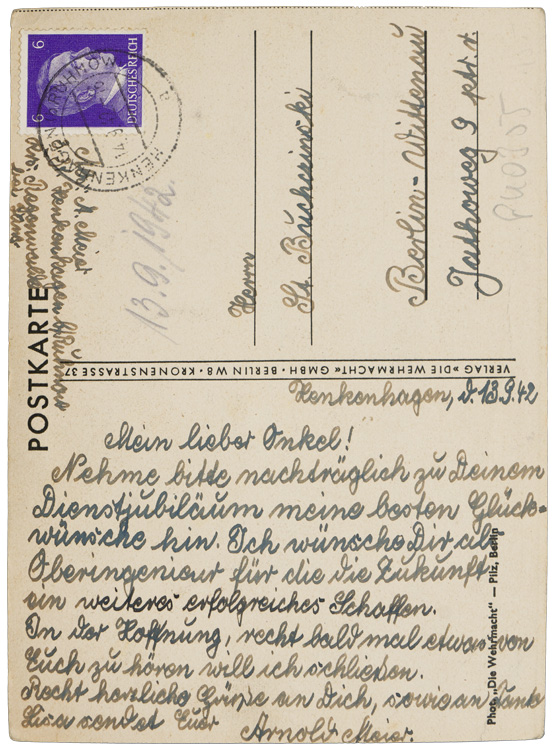 POSTKARTE
6
6
DEUTSCHES REICH
HENKENHAGEN
13.9.1942.
A. Meier
Henkenhagen
Herrn
St. Buchsinski
Berlin-Wittenau
Jathoweg 9 ptr. r.
VERLAG »DIE WEHRMACHT« GMBH · BERLIN W8 · KRONENSTRASSE 37
Henkenhagen, d. 13.9.42
Mein lieber Onkel!
Nehme bitte nachträglich zu Deinem
Dienstjubiläum meine besten Glück-
wünsche hin. Ich wünsche Dir als
Oberingenieur für die die Zukunft
ein weiteres erfolgreiches Schaffen.
In der Hoffnung, recht bald mal etwas von
Euch zu hören will ich schließen.
Recht herzliche Grüße an Dich, sowie an Tante
Lisa sendet Euer Arnold Meier.
Photo „Die Wehrmacht" — Pilz, Berlin